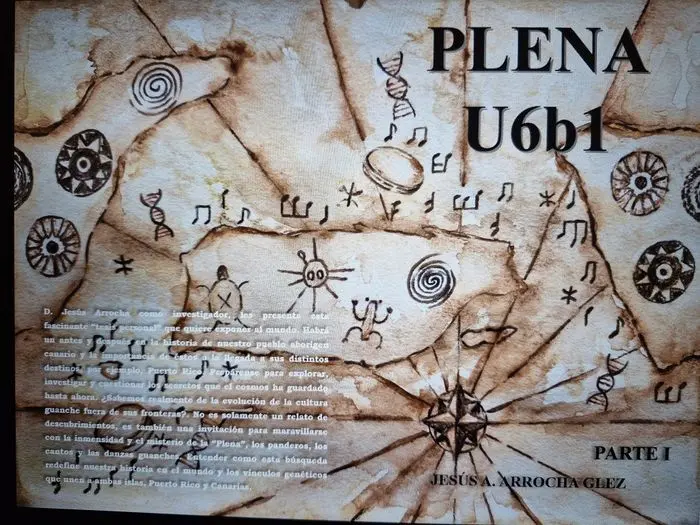 PLENA
U6b1
D. Jesús Arrocha como investigador, les presenta esta
fascinante "tesis personal" que quiere exponer al mundo. Habrá
un antes y después en la historia de nuestro pueblo aborigen
canario y la importancia de éstos a la llegada a sus distintos
destinos, por ejemplo, Puerto Rico. Prepárense para explorar,
investigar y cuestionar los secretos que el cosmos ha guardado
hasta ahora. ¿Sabemos realmente de la evolución de la cultura
guanche fuera de sus fronteras?. No es solamente un relato de
descubrimientos, es también una invitación para maravillarse
con la inmensidad y el misterio de la "Plena", los panderos, los
cantos y las danzas guanches. Entender como esta búsqueda
redefine nuestra historia en el mundo y los vínculos genéticos
que unen a ambas islas, Puerto Rico y Canarias.
PARTE I
JESÚS A. ARROCHA GLEZ